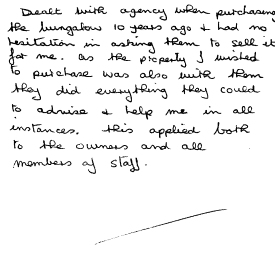 Dealt with agency when purchasing
the bungalow 10 years ago & had no
hesitation in asking them to sell it
for me. As the property I wished
to purchase was also with them
they did everything they could
to advise & help me in all
instances. This applied both
to the owners and all
members of staff.